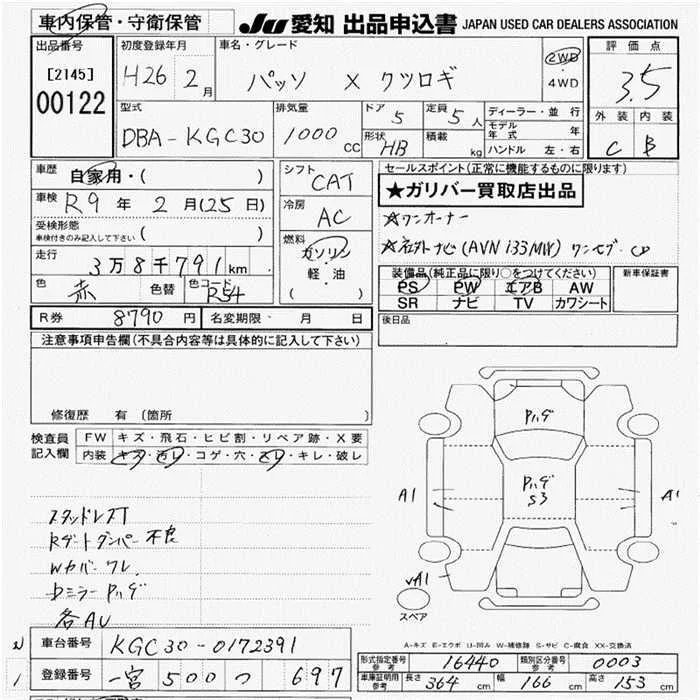 車内保管・守衛保管
JU 愛知 出品申込書 JAPAN USED CAR DEALERS ASSOCIATION
出品番号
[2145]
00122
初度登録年月
H26 2月
車名・グレード
パッソ X クツロギ
2WD
・
4WD
評価点
3.5
外装 内装
C B
型式
DBA-KGC30
排気量
1000 cc
ドア 5
定員 5人
形状 HB
積載 kg
ディーラー・並行
モデル年式 年
ハンドル 左・右
車歴 自家用・( )
車検 R9年 2月(25日)
受検形態
車検付きのみ記入して下さい ( )
走行 3万8千791km
色 赤 色替 色コード R54
シフト CAT
冷房 AC
燃料
ガソリン
軽・油
( )
セールスポイント(正常に機能するものに限ります)
★ガリバー買取店出品
☆ワンオーナー
☆社外ナビ(AVN i33MW) ワンセグ・CD
装備品(純正品に限り○をつけてください)
PS PW エアB AW
SR ナビ TV カワシート
新車保証書
後日品
R券 8790円 名変期限・ 月 日
注意事項申告欄(不具合内容等は具体的に記入して下さい)
修復歴 有 (箇所
検査員記入欄
FW キズ・飛石・ヒビ割・リペア跡・X要
内装 キズ・汚レ・コゲ・穴・スレ・キレ・破レ
スタッドレスT
Rゲートダンパー不良
Wカバーワレ
Dミラー Pハゲ
各AU
Pハゲ
Pハゲ
S3
A1
A1
A1
スペア
A-キズ E-エクボ U-凹み W-補修跡 S-サビ C-腐食 XX-交換済
車台番号 KGC30-0172391
登録番号 一宮 500 つ 697
形式指定番号 参考 16440 類別区分番号 参考 0003
車庫証明用 参考 長さ 364 cm 幅 166 cm 高さ 153 cm